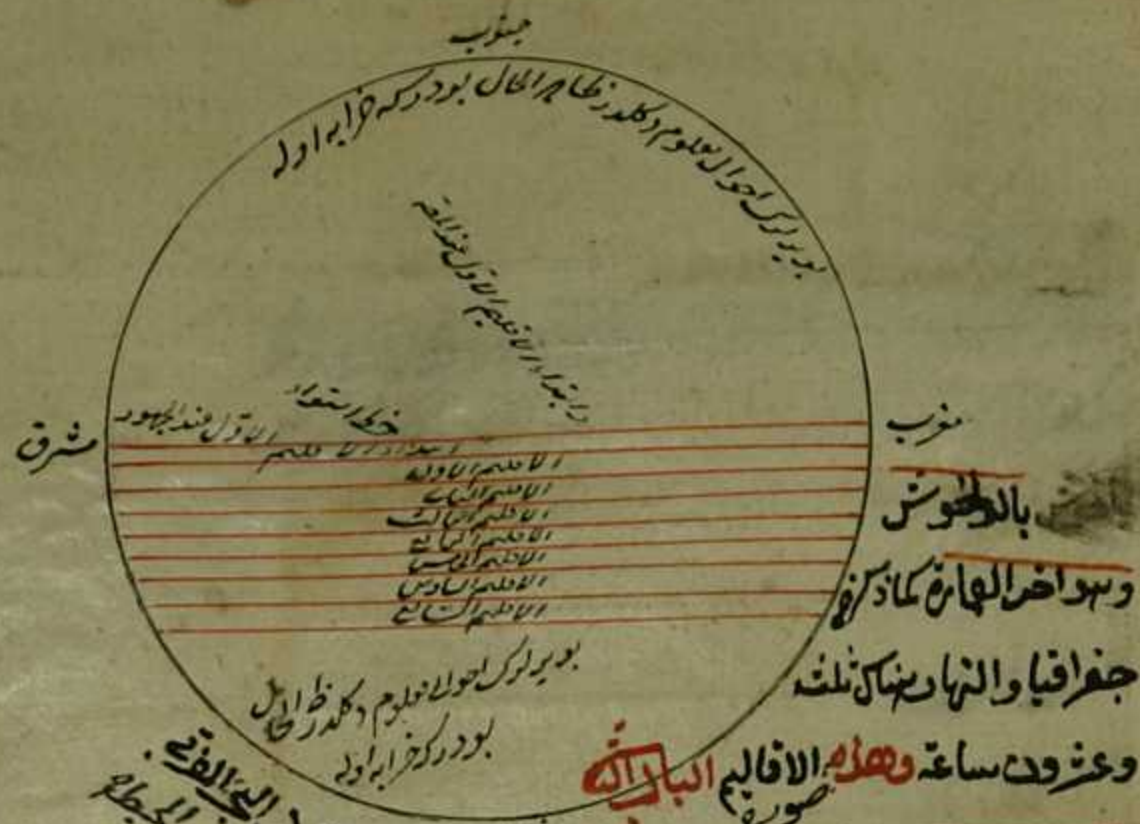 جنوب
بو يرلرك احوالی معلوم دكلدر ظاهر الحال بودر كه خرابه اوله
وابتداء الاقليم الاول عند
خط استواء
مشرق
مغرب
ابتداء الاقليم الاول عند الجمهور
الاقليم الاول
الاقليم الثانی
الاقليم الثالث
الاقليم الرابع
الاقليم الخامس
الاقليم السادس
الاقليم السابع
بو يرلرك احوالی معلوم دكلدر ظاهر الحال
بودر كه خرابه اوله
وهو اخر العمارة كما ذكر فی
جغرافيا والنهار هناك ثلث
وعشرون ساعة وهذه صورة الاقاليم